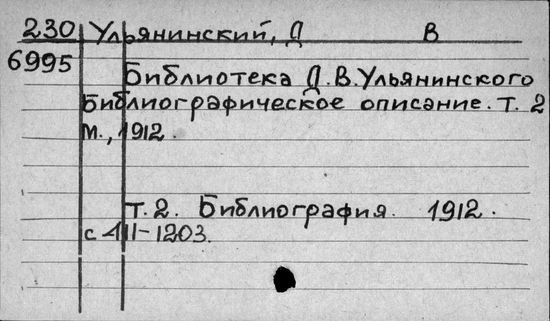 230 Ульянинский, Д В
6995
Библиотека Д.В.Ульянинского
Библиографическое описание. Т. 2
М., 1912.
Т. 2. Библиография. 1912.
с 411-1203.